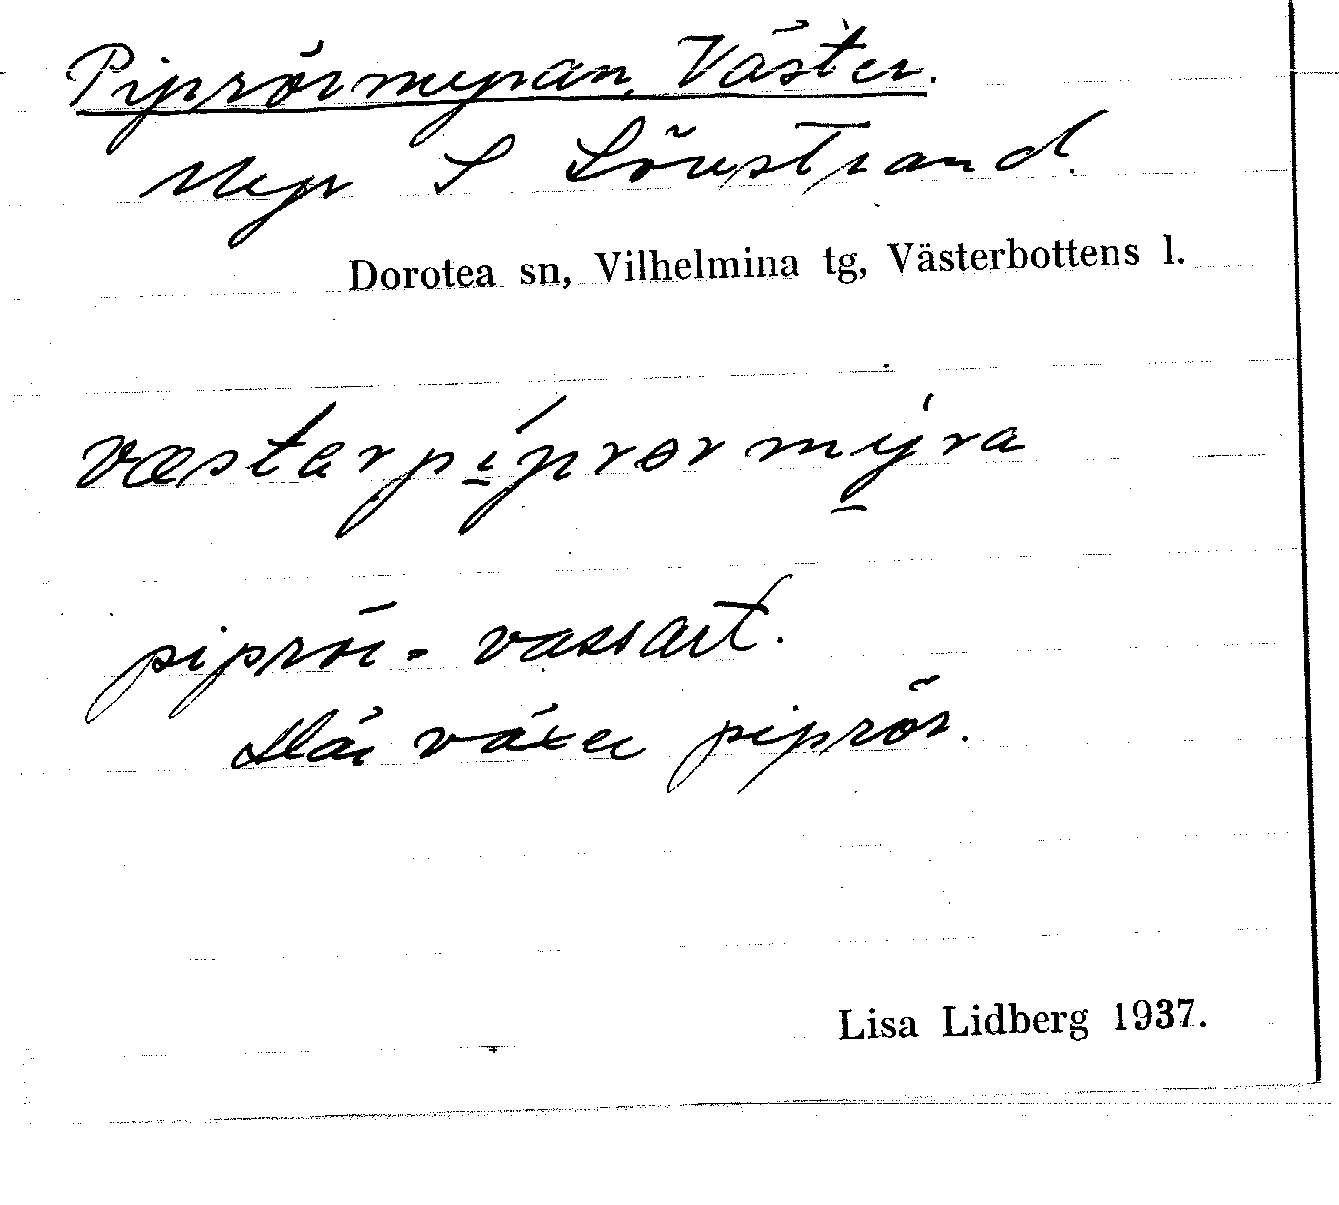 Piprörmyran, Väster.
Myr S Lövstrand.
Dorotea sn, Vilhelmina tg, Västerbottens l.
væstərpípwrørmýra
piprör = vassart.
Där växer piprör.
Lisa Lidberg 1937.